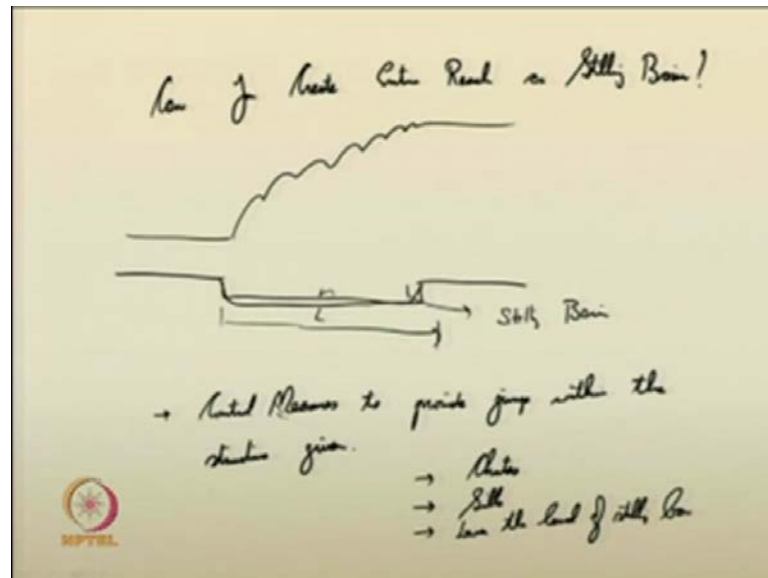 Can I Create Entire Reach as Stilling Basin?
L
Stilling Basin
→ Control Measures to provide jump within the
structure given.
→ Chutes
→ Sills
→ Lower the level of stilling basin
NPTEL